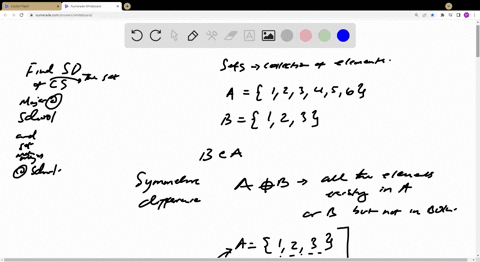 numerade.com/answers/whiteboard
Find SD
of CS The set
Major @
School
and
set
@ School.
Sets → collection of elements.
A = { 1, 2, 3, 4, 5, 6 }
B = { 1, 2, 3 }
B ⊂ A
Symmetric
difference
A ⊕ B → all the elements
existing in A
or B but not in Both.
A = { 1, 2, 3 }